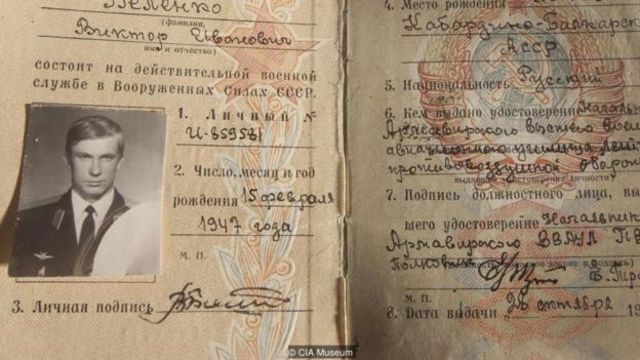 Беленко
(фамилия,
Виктор Иванович
имя и отчество)
состоит на действительной военной
службе в Вооруженных Силах СССР.
1. Личный №
И-859581
2. Число, месяц и год
рождения 15 февраля
1947 года
М. П.
3. Личная подпись
4. Место рождения
Кабардино-Балкарск
АССР
5. Национальность Русский
6. Кем выдано удостоверение Началь
Армавирского высшего воен
авиационного училища
противовоздушной оборон
7. Подпись должностного лица, вы
шего удостоверение Начальник
Армавирского ВВАУЛ ПВ
Полковник
М. П.
8. Дата выдачи „26 октября 19
© CIA Museum